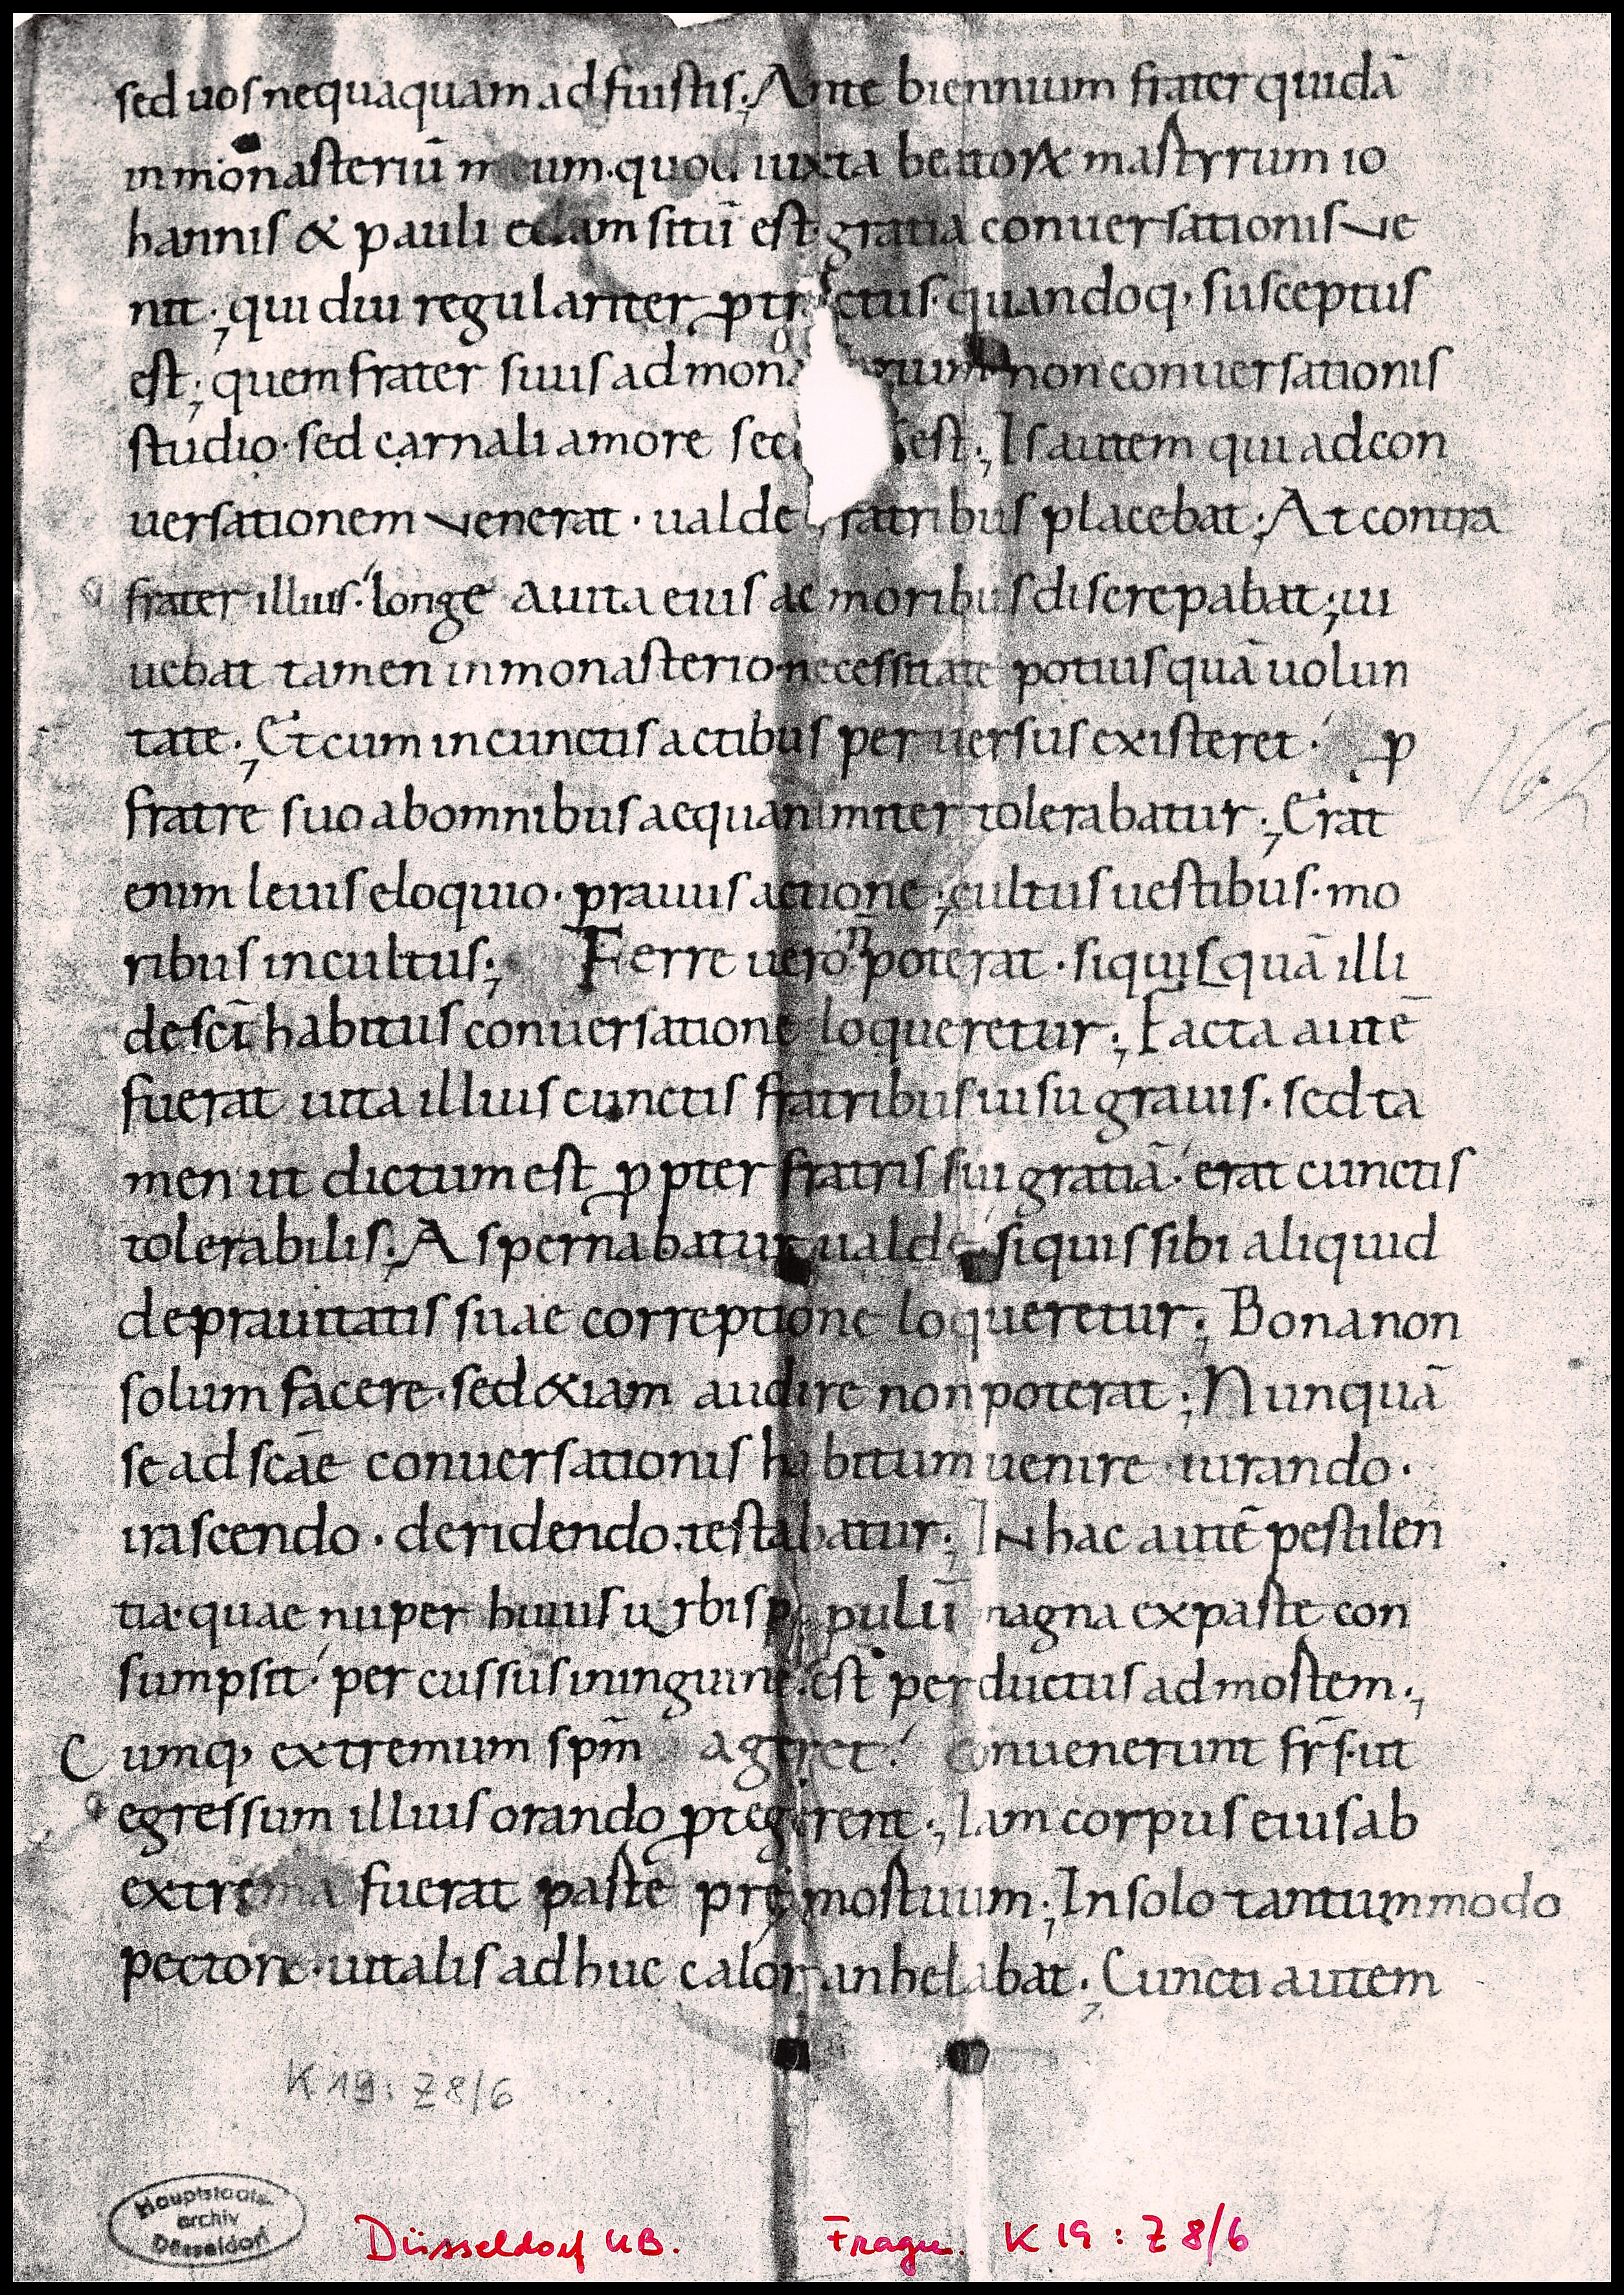 sed uos nequaquam adfuistis; Ante biennium frater quidā
in monasteriū meum. quod iuxta beatorꝝ martyrum io
hannis & pauli ecclam sitū est gratia conuersationis ue
nit; qui diu regulariter ꝓtractus. quandoq; susceptus
est; quem frater suus ad mona rium non conuersationis
studio. sed carnali amore sec est; Is autem qui ad con
uersationem uenerat. ualde fratribus placebat; At contra
frater illius. longe a uita eius ac moribus discrepabat; ui
uebat tamen in monasterio necessitate potius quā uolun
tate; Et cum in cunctis actibus peruersus existeret. ꝓ
fratre suo ab omnibus aequanimiter tolerabatur; Erat
enim leuis eloquio. prauus actione; cultus uestibus. mo
ribus incultus; Ferre uero n̄ poterat. si quisquā illi
de sc̄i habitus conuersatione loqueretur; Facta autē
fuerat uita illius cunctis fratribus uisu grauis. sed ta
men ut dictum est ꝓpter fratris sui gratiā. erat cunctis
tolerabilis; Aspernabatur ualde si quis sibi aliquid
de prauitatis suae correptione loqueretur; Bona non
solum facere. sed &iam audire non poterat; Nunquā
se ad scāe conuersationis habitum uenire iurando.
irascendo. deridendo. testabatur; In hac autē pestilen
tia. quae nuper huius urbis populū magna ex parte con
sumpsit. percussus in inguine. est perductus ad mortem;
Cumq; extremum spm̄ ageret. conuenerunt fr̄s. ut
egressum illius orando ꝓtegerent; Iam corpus eius ab
extrema fuerat parte premortuum; In solo tantummodo
pectore. uitalis adhuc calor anhelabat; Cuncti autem
162
K 19: Z 8/6
Hauptstaats
archiv
Düsseldorf
Düsseldorf UB. Fragm. K 19 : Z 8/6